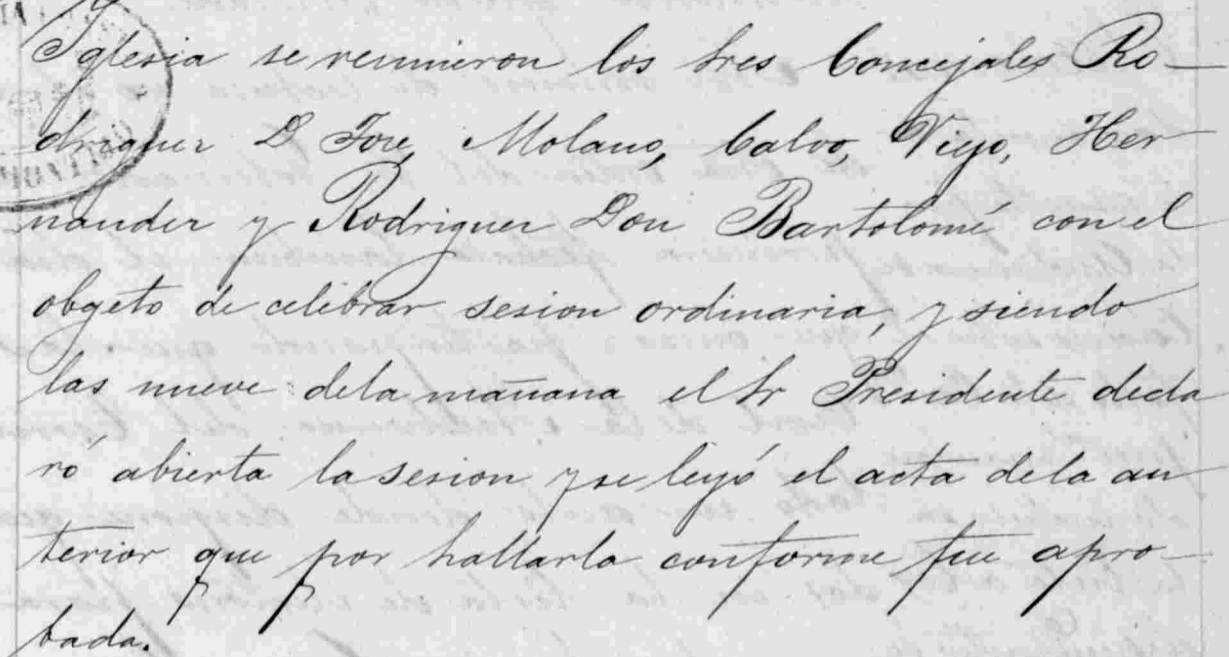 Iglesia se reunieron los Sres Concejales Ro-
driguez D Jose, Molano, Calvo, Viejo, Her
nandez y Rodriguez Don Bartolomé con el
obgeto de celebrar sesion ordinaria, y siendo
las nueve dela mañana el Sr Presidente decla
ró abierta la sesion y se leyó el acta dela an
terior que por hallarla conforme fue apro
bada.